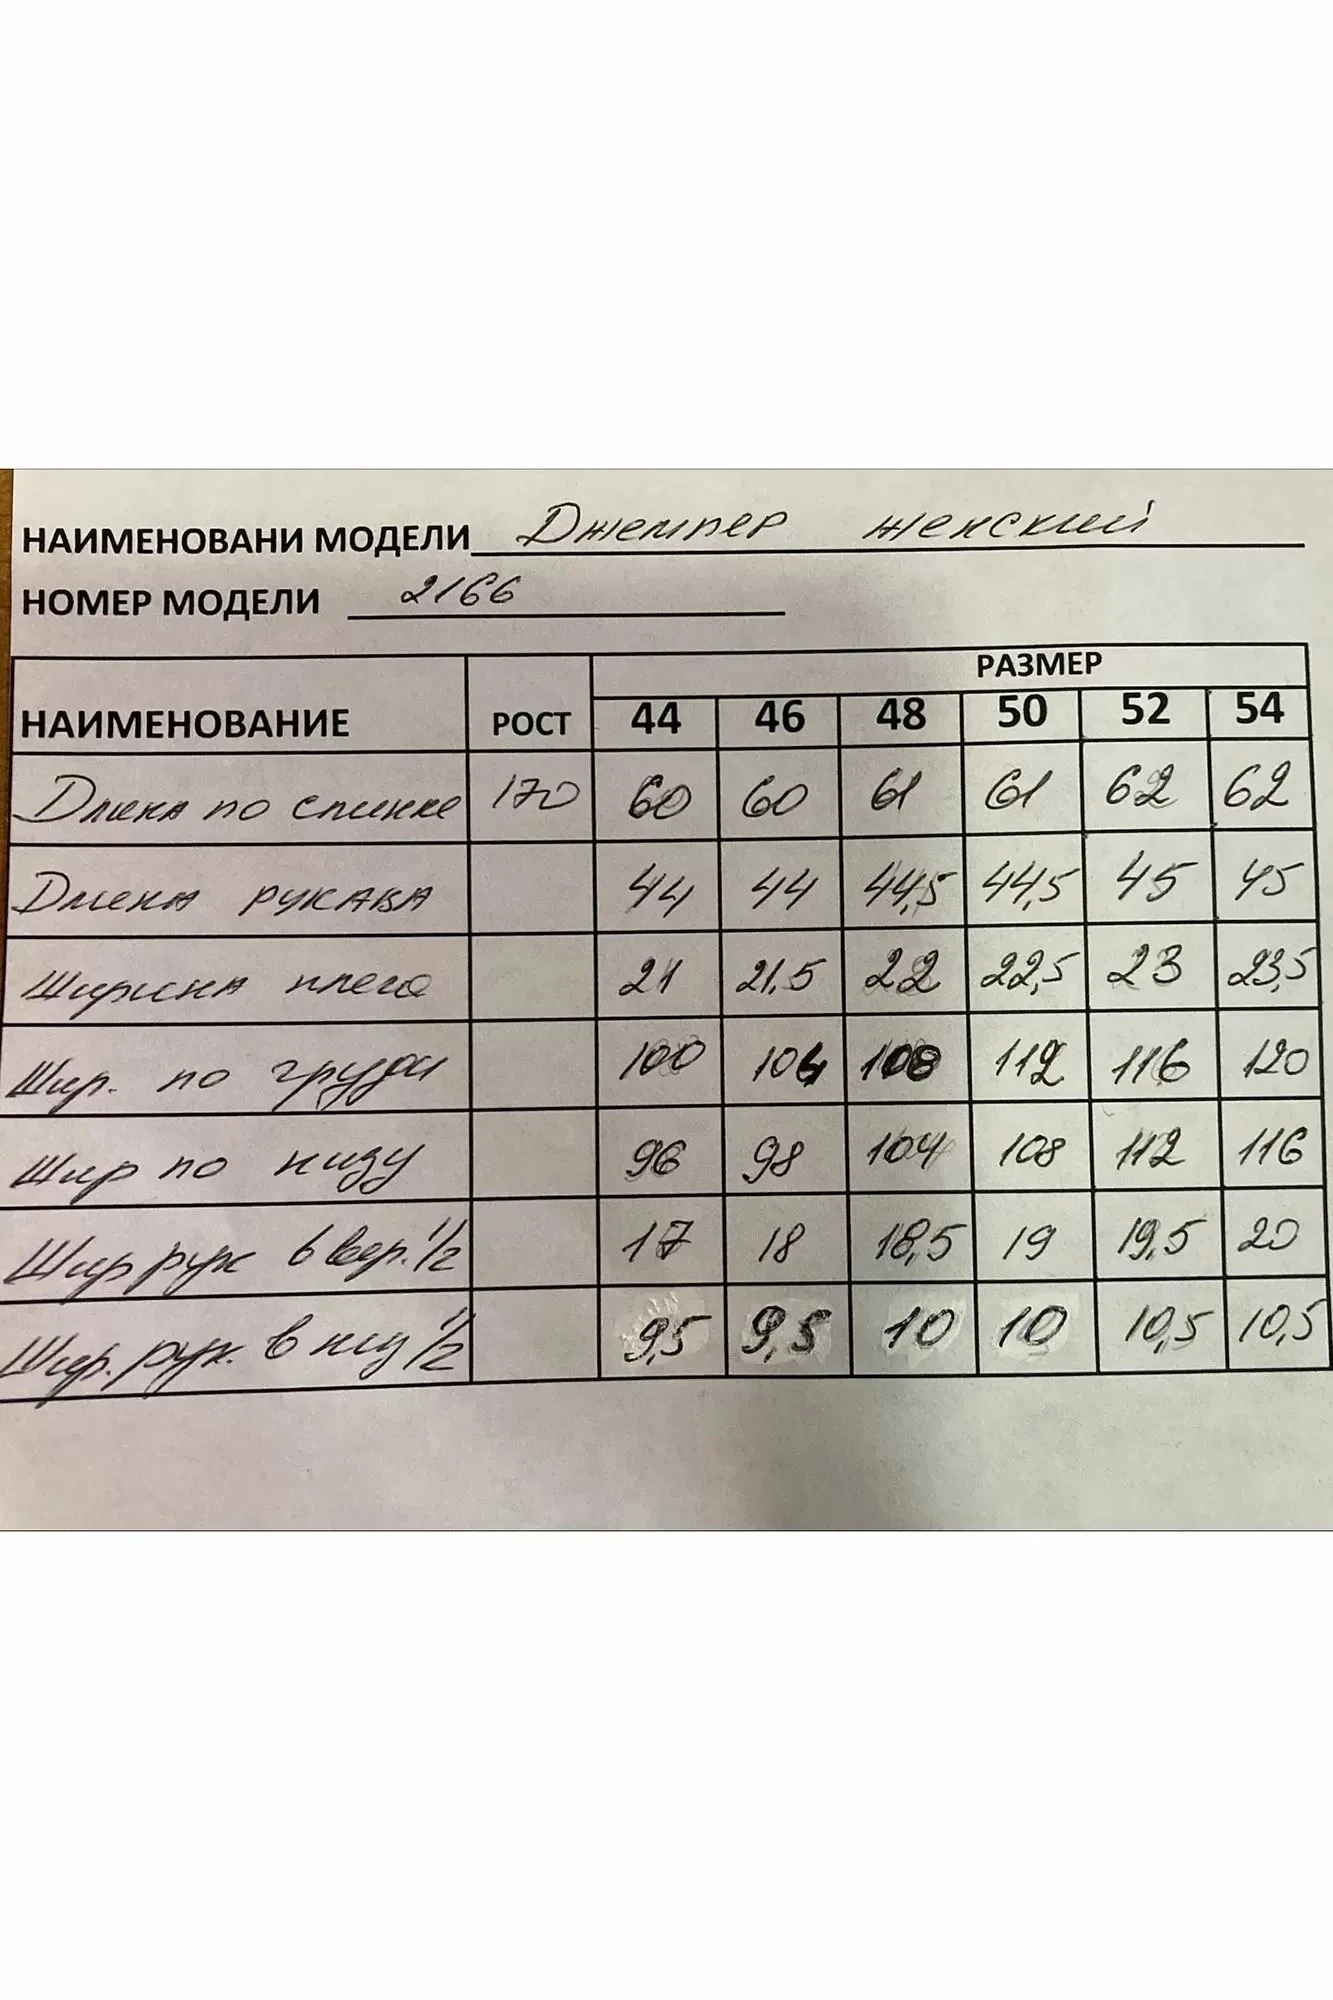 НАИМЕНОВАНИ МОДЕЛИ Джемпер женский
НОМЕР МОДЕЛИ 2166
РАЗМЕР
НАИМЕНОВАНИЕ РОСТ 44 46 48 50 52 54
Длина по спинке 170 60 60 61 61 62 62
Длина рукава 44 44 44,5 44,5 45 45
Ширина плеча 21 21.5 22 22,5 23 23,5
Шир. по груди 100 104 108 112 116 120
Шир по низу 96 98 104 108 112 116
Шир рук в вер. 1/2 17 18 18,5 19 19,5 20
Шир. рук. в низ 1/2 9,5 9,5 10 10 10,5 10,5